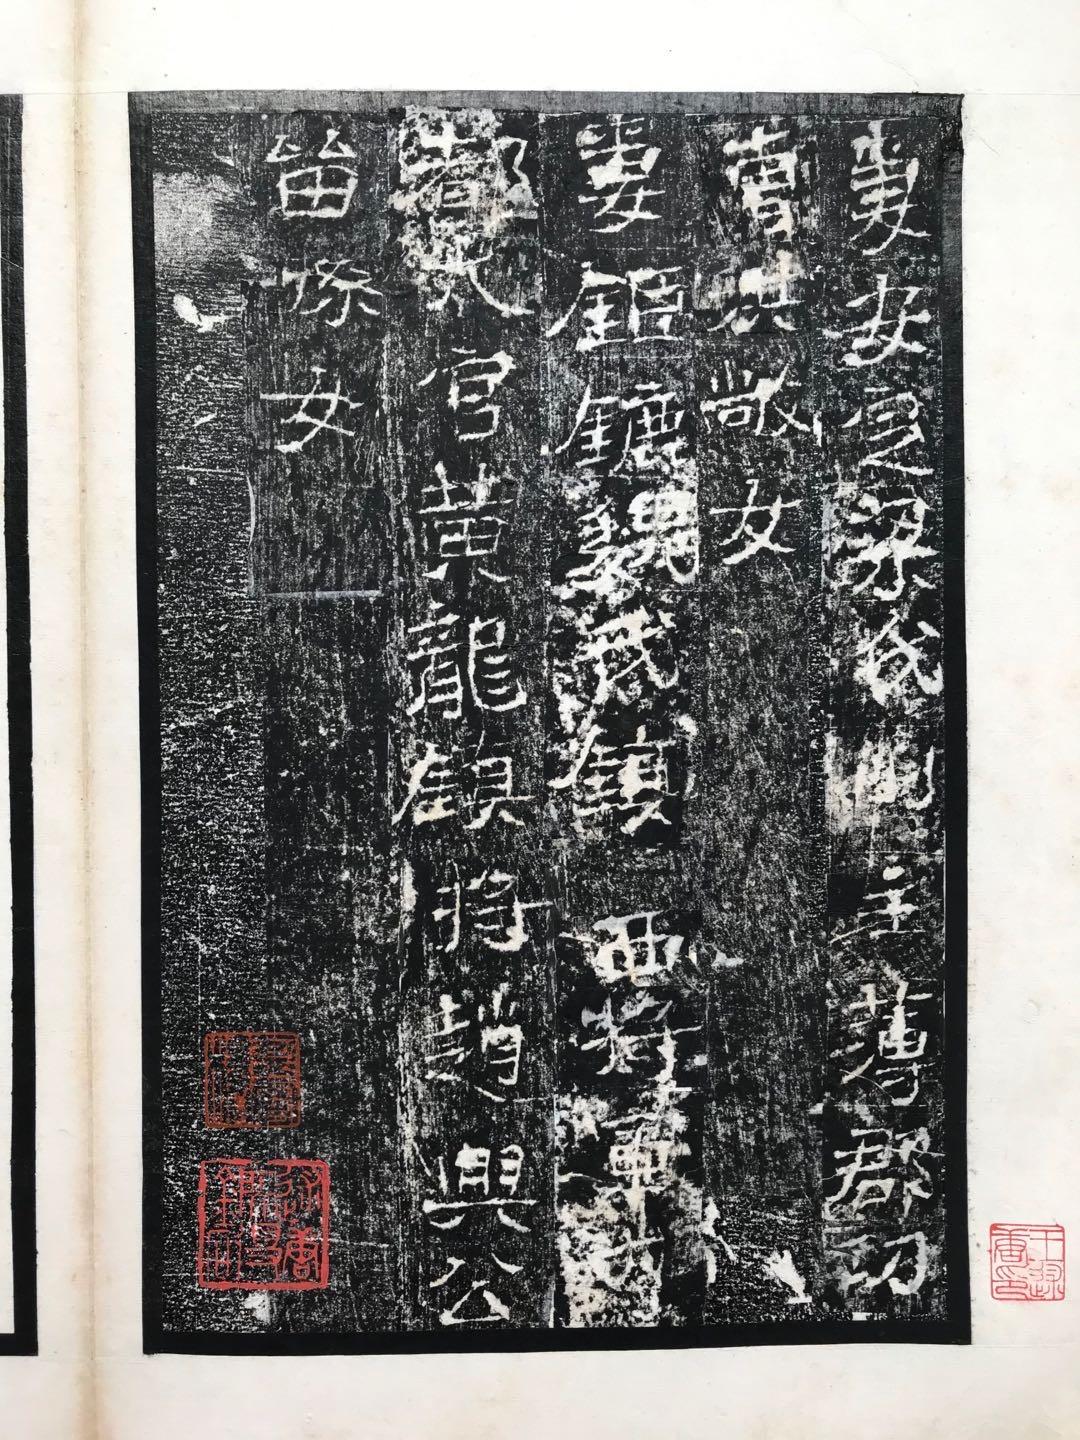 妻安定梁氏州主薄郡功
曹洪敞女
妻鉅鹿魏氏鎮西將軍
都  官黃龍鎮將趙興公
苗孫女